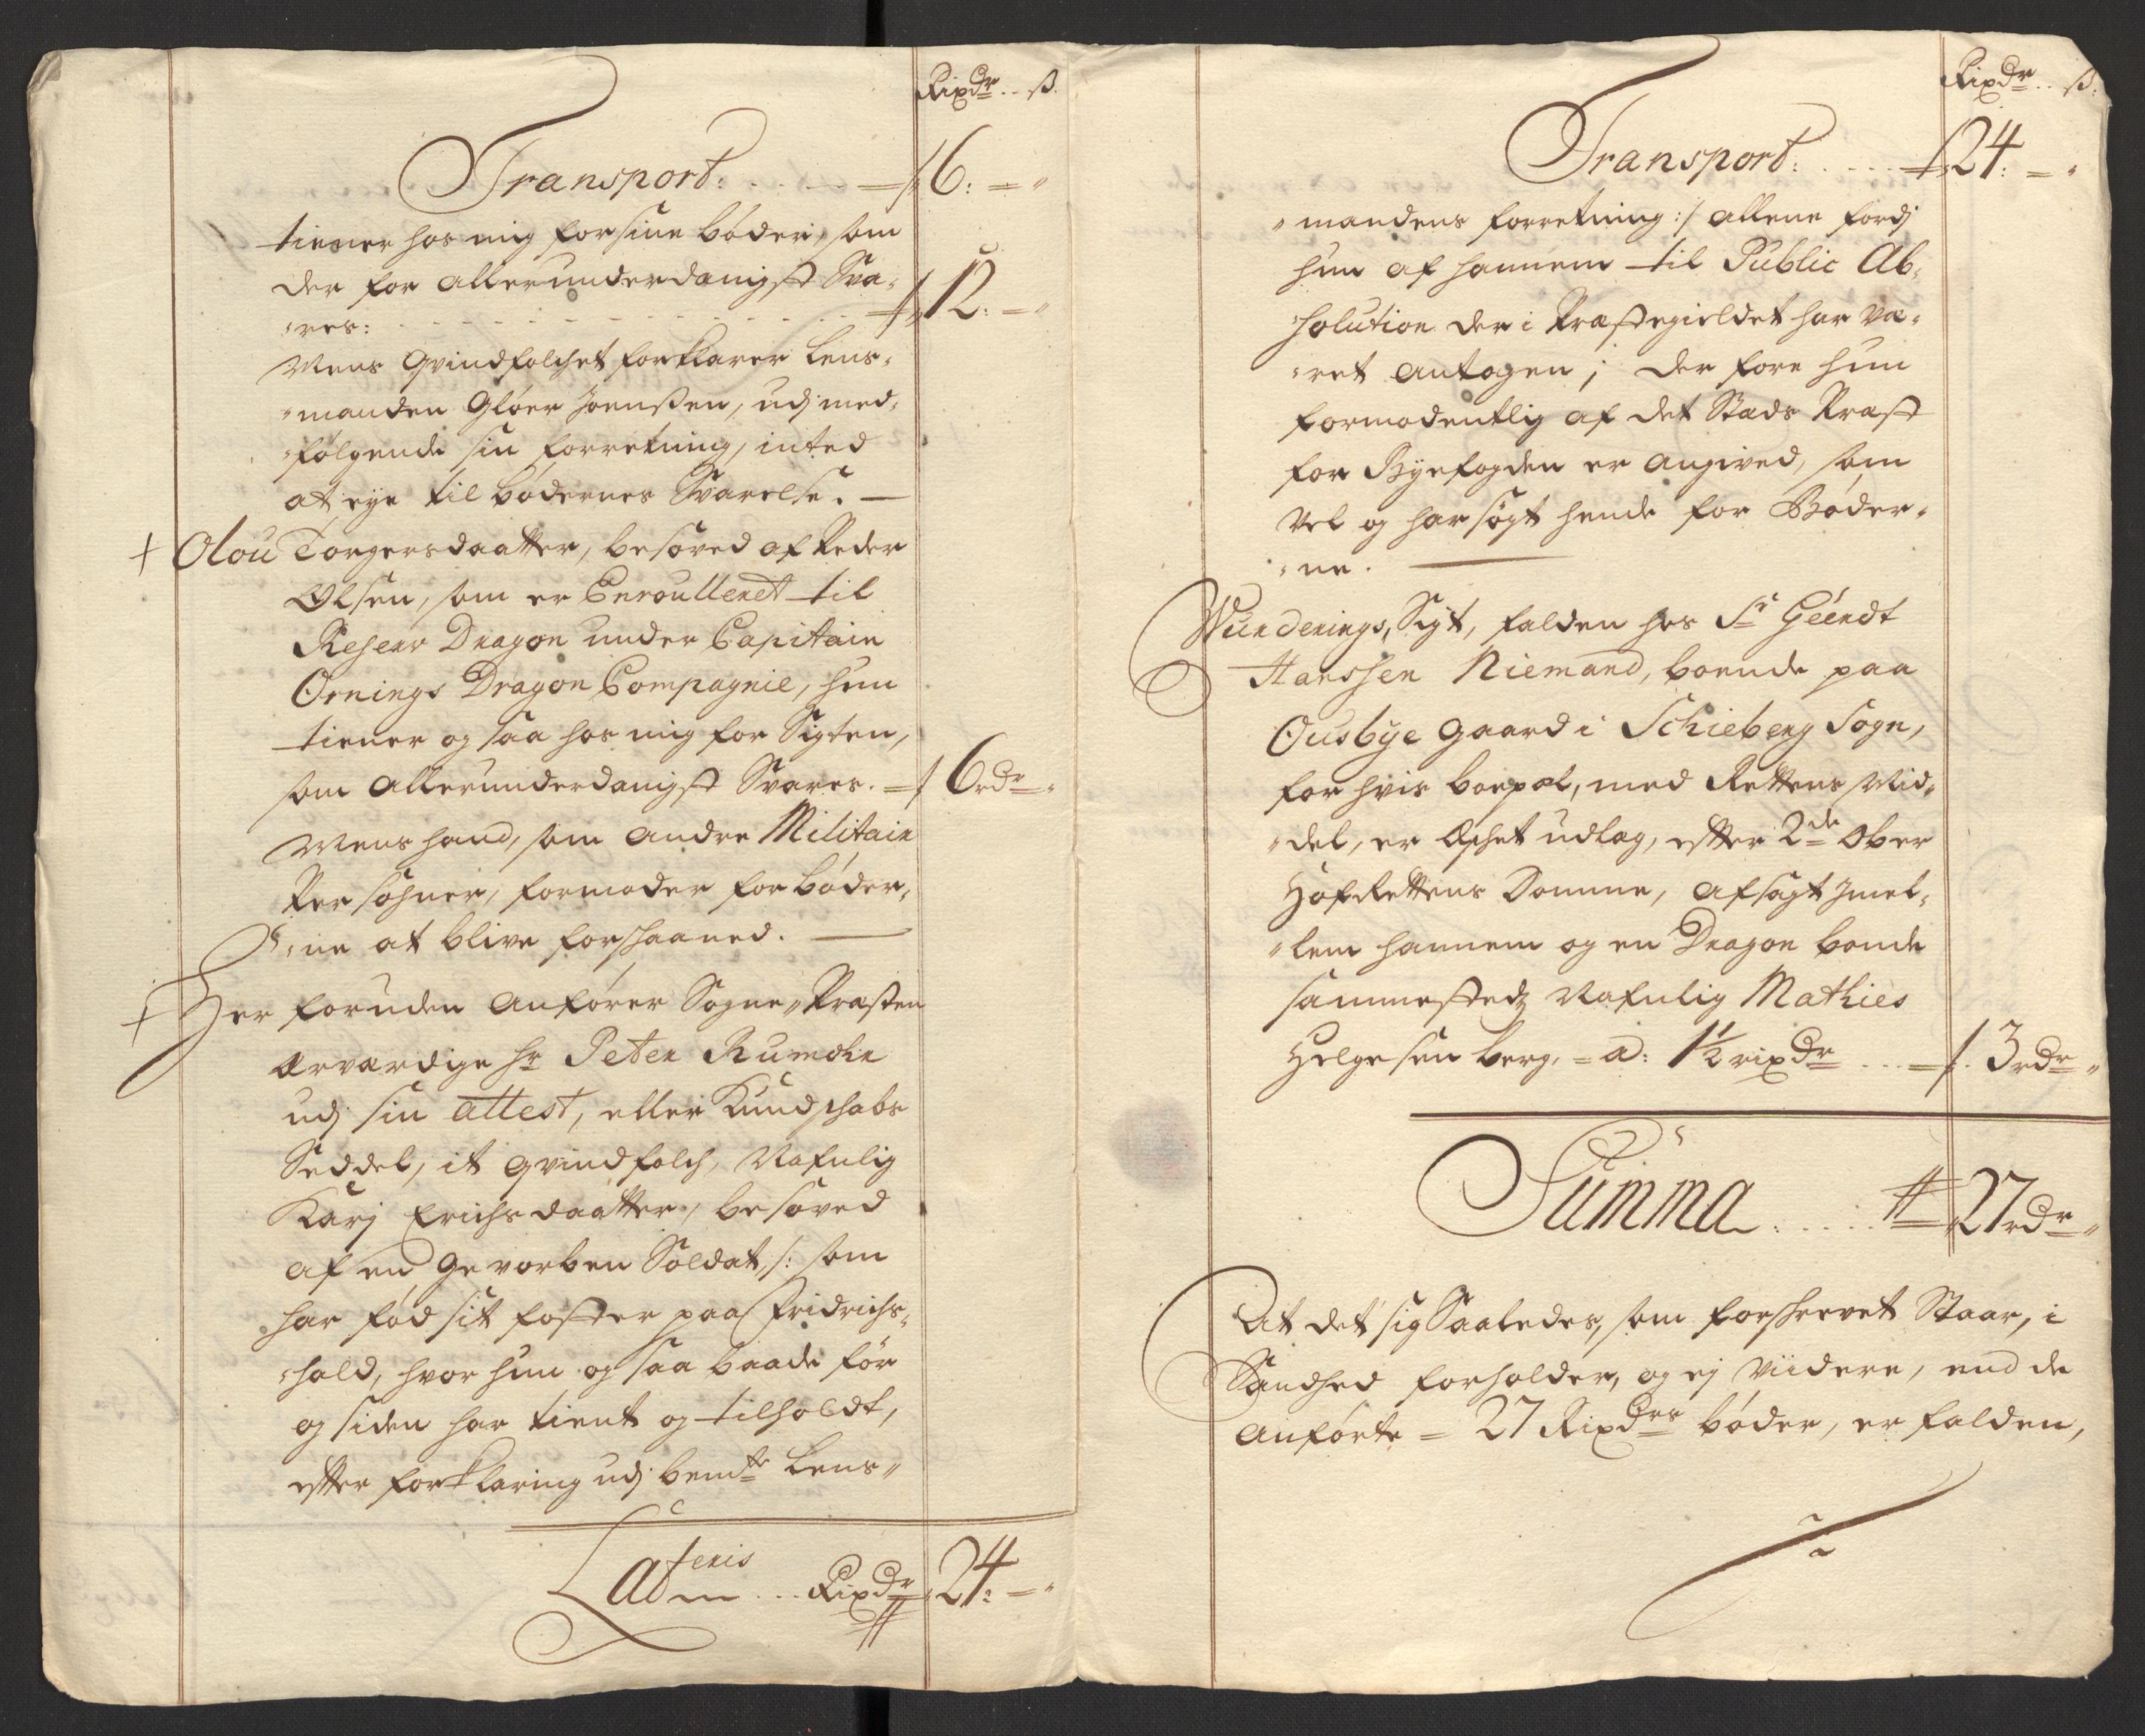 Rixdr .. ß.
Transport: . . . . . 6: = "
tiener hos mig for sine bøder, som
der for allerunderdanigst Sva-
"res: . . . . . . . . 12: = "
Mens Qvindfolchet forklarer Lens-
"manden Gløer Joenssen, udj med-
"følgende sin forretning, inted
at eye til bødernes Svarelse. —
+ Olou Torgersdaatter, besøved af Peder
Olsen, som er Enroulleret til
Reserv Dragon under Capitain
Ornings Dragon Compagnie, hun
tiener og saa hos mig for Sigten,
som allerunderdanigst Svares. = 6 rdr "
Mens hand, som andre Militair
Persohner, formoder for bøder-
"ne at blive forskaaned. —
+ Her foruden anfører Sogne-Præsten
Ærværdige hr Peter Rumohr
udj sin attest, eller Kundschabs
Seddel, it qvindfolch, Nafnlig
Karj Erichsdaatter, besøved
af en Gevorben Soldat, /: som
har fød sit foster paa Fridrichs-
"hald, hvor hun og saa baade før
og siden har tient og tilholdt,
efter forklaring udj bemte Lens-
Lateris . . . Rixdr 24: = "
Rixdr .. ß:
Transport: . . . . 24: = "
"mandens forretning :/ allene fordj
hun af hannem til Public Ab-
"solution der i Præstegieldet har væ-
"ret antagen; der fore hun
formodentlig af det Stads Præst
for Byefogden er angived, som
Vel og har søgt hende for Bøder-
"ne. —
Wurderings, Sigt, falden hos Sr Geerdt
Hanssen Niemand, boende paa
Ousbye gaard i Schieberg Sogn,
for hvis boepæl, med Rettens Mid-
"del, er æschet udlæg, efter 2de Ober
Hof Rettens Domme, afsagt Jmel-
"lem hannem og en Dragon bonde
sammestedz Nafnlig Mathies
Helgesen berg, = a: 1½ rixdr . . . = 3 rdr "
Summa . . . . . 27 rdr "
At det sig Saaledes, som forskrevet Staar, i
Sandhed forholder, og ej viidere, end de
anførte = 27 Rixdrs bøder, er falden,